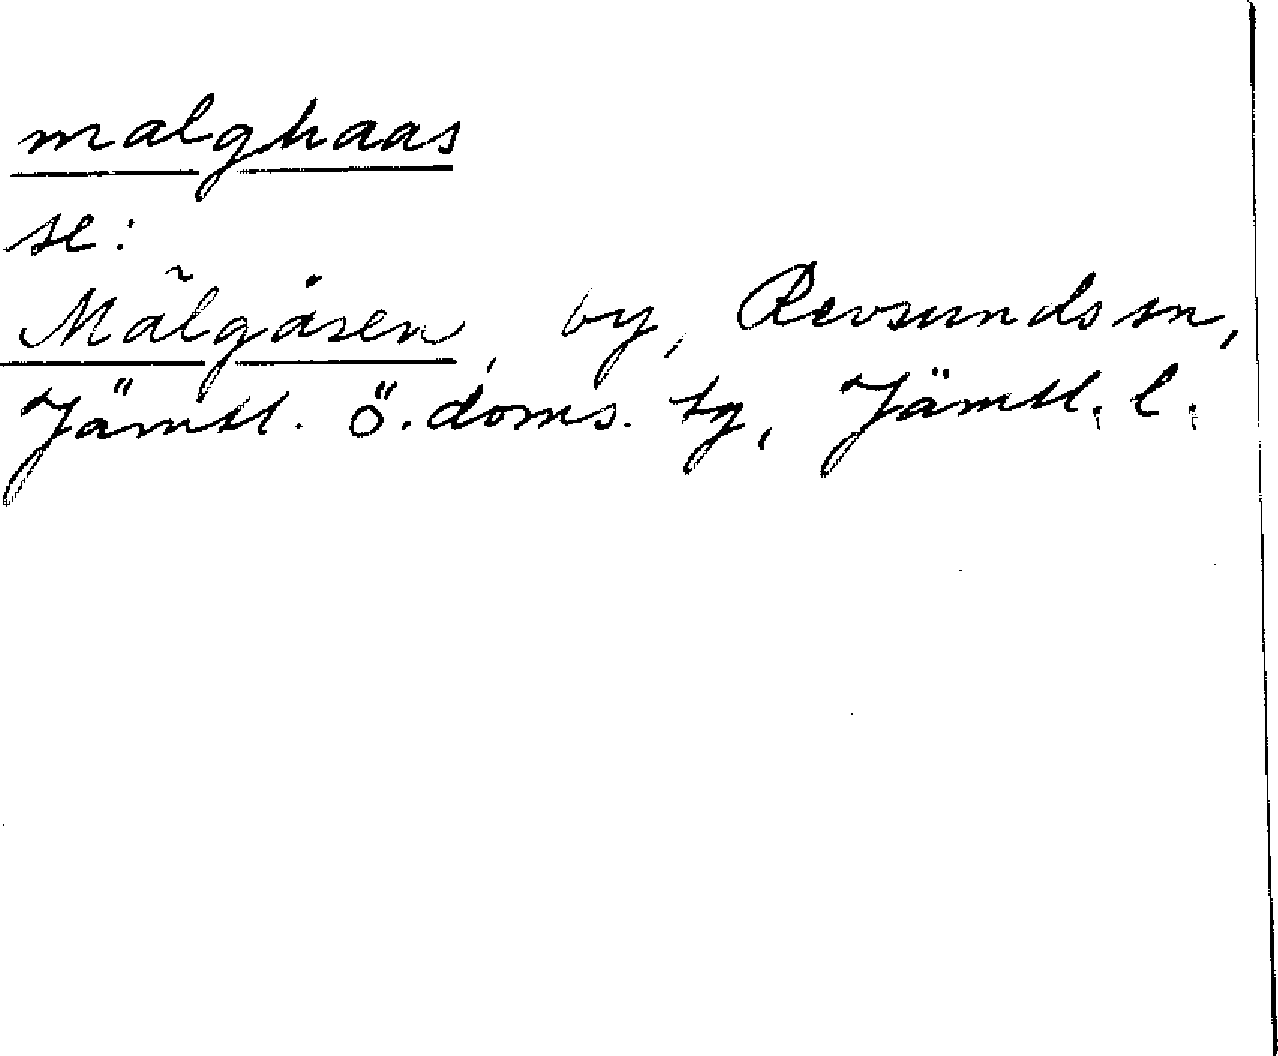 malghaas
se:
Mälgåsen, by, Revsunds sn,
Jämtl. ö. doms. tg, Jämtl. l.